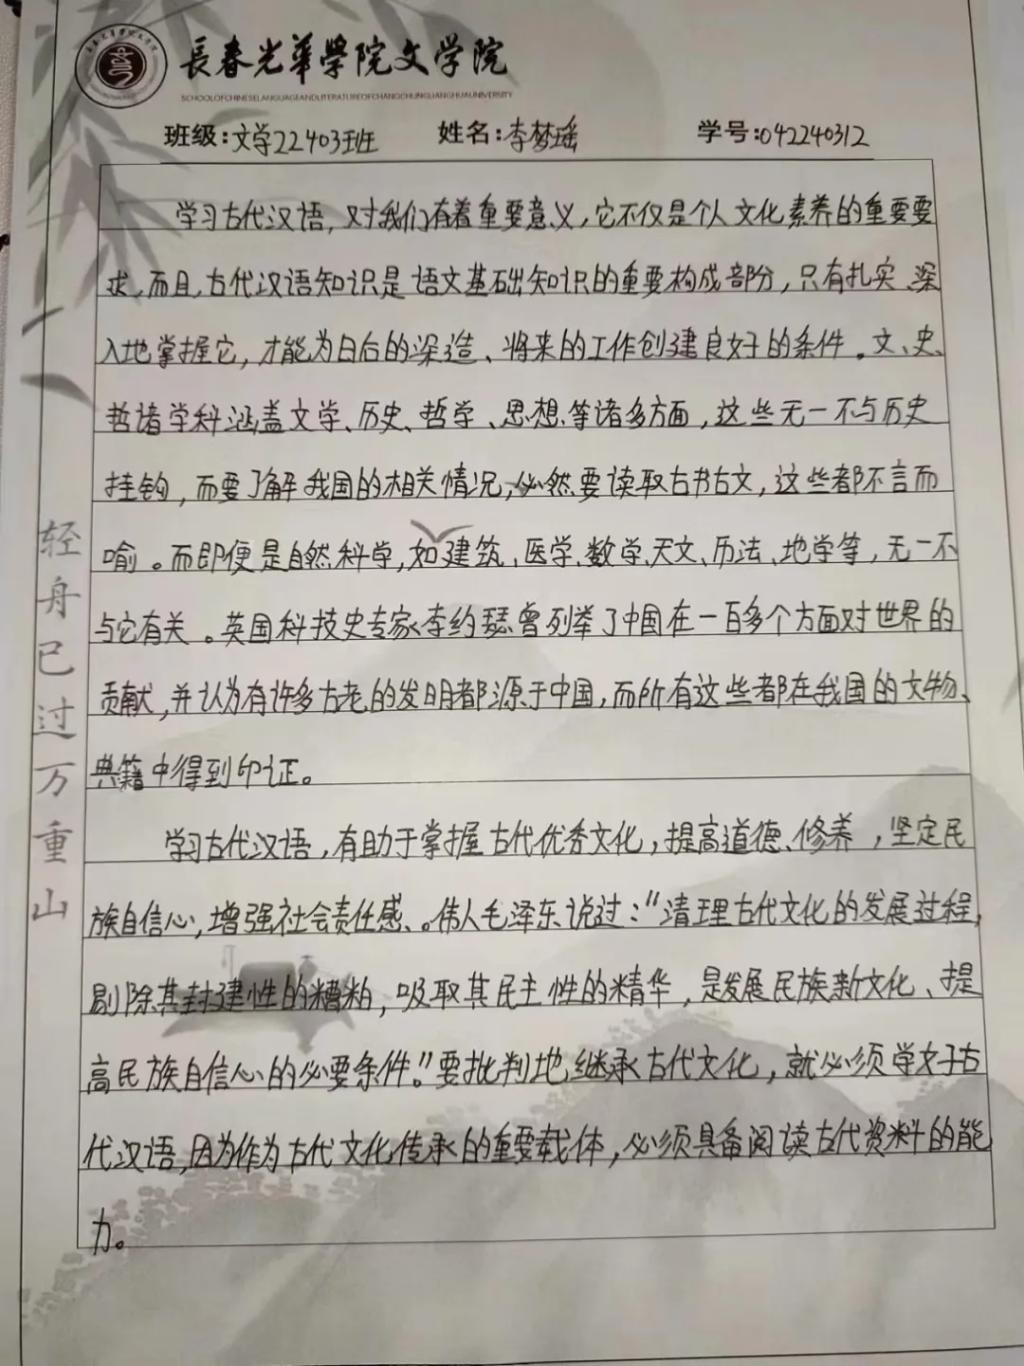 長春光華學院文学院
SCHOOLOFCHINESELANGUAGEANDLITERATUREOFCHANGCHUNGUANGHUAUNIVERSITY
班级:文学22403班班 姓名:李梦瑶 学号:042240312
学习古代汉语,对我们有着重要意义,它不仅是个人文化素养的重要要
求,而且,古代汉语知识是语文基础知识的重要构成部分,只有扎实、深
入地掌握它,才能为日后的深造、将来的工作创建良好的条件。文、史、
哲诸学科涵盖文学、历史、哲学、思想等诸多方面,这些无一不与历史
挂钩,而要了解我国的相关情况,必然要读取古书古文,这些都不言而
喻。而即便是自然科学,如建筑、医学、数学、天文、历法、地学等,无一不
与它有关。英国科技史专家李约瑟曾列举了中国在一百多个方面对世界的
贡献,并认为有许多古老的发明都源于中国,而所有这些都在我国的文物、
典籍中得到印证。
学习古代汉语,有助于掌握古代优秀文化,提高道德、修养,坚定民
族自信心,增强社会责任感、。伟人毛泽东说过:“清理古代文化的发展过程,
剔除其封建性的糟粕,吸取其民主性的精华,是发展民族新文化、提
高民族自信心的必要条件。”要批判地继承古代文化,就必须学好古
代汉语,因为作为古代文化传承的重要载体,必须具备阅读古代资料的能
力。
轻舟已过万重山